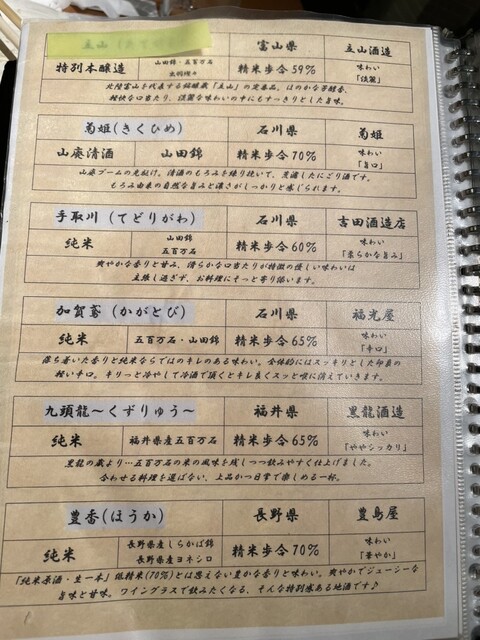 立山 富山県 立山酒造
特別本醸造 山田錦・五百万石 精米歩合59% 味わい
「淡麗」
北陸富山を代表する銘醸蔵「立山」の定番品。ほのかな芳醇香、
軽快な口当たり、淡麗な味わいの中にもすっきりとした旨味。
菊姫(きくひめ) 石川県 菊姫
山廃清酒 山田錦 精米歩合70% 味わい
「旨口」
山廃ブームの先駆け。清酒のもろみを練り抜いて、荒濾したにごり酒です。
もろみ由来の自然な旨みと濃さがしっかりと感じられます。
手取川(てどりがわ) 石川県 吉田酒造店
純米 山田錦 精米歩合60% 味わい
五百万石 「柔らかな旨み」
爽やかな香りと甘み、清らかな口当たりが特徴の優しい味わいは
主張し過ぎず、お料理にそっと寄り添います。
加賀鳶(かがとび) 石川県 福光屋
純米 五百万石・山田錦 精米歩合65% 味わい
「辛口」
落ち着いた香りと純米ならではのキレのある味わい。全体的にはスッキリとした印象の
軽い辛口。キリっと冷やして冷酒で頂くとキレ良くスッと喉に消えていきます。
九頭龍〜くずりゅう〜 福井県 黒龍酒造
純米 福井県産五百万石 精米歩合65% 味わい
「ややシッカリ」
黒龍の蔵より…五百万石の米の風味を残しつつ飲みやすく仕上げました。
合わせる料理を選ばない、上品かつ日常で楽しめる一杯。
豊香(ほうか) 長野県 豊島屋
純米 長野県産しらかば錦 精米歩合70% 味わい
長野県産ヨネシロ 「華やか」
「純米原酒・生一本」低精米(70%)とは思えない豊かな香りと味わい。爽やかでジューシーな
旨味と甘味。ワイングラスで飲みたくなる、そんな特別感ある地酒です♪